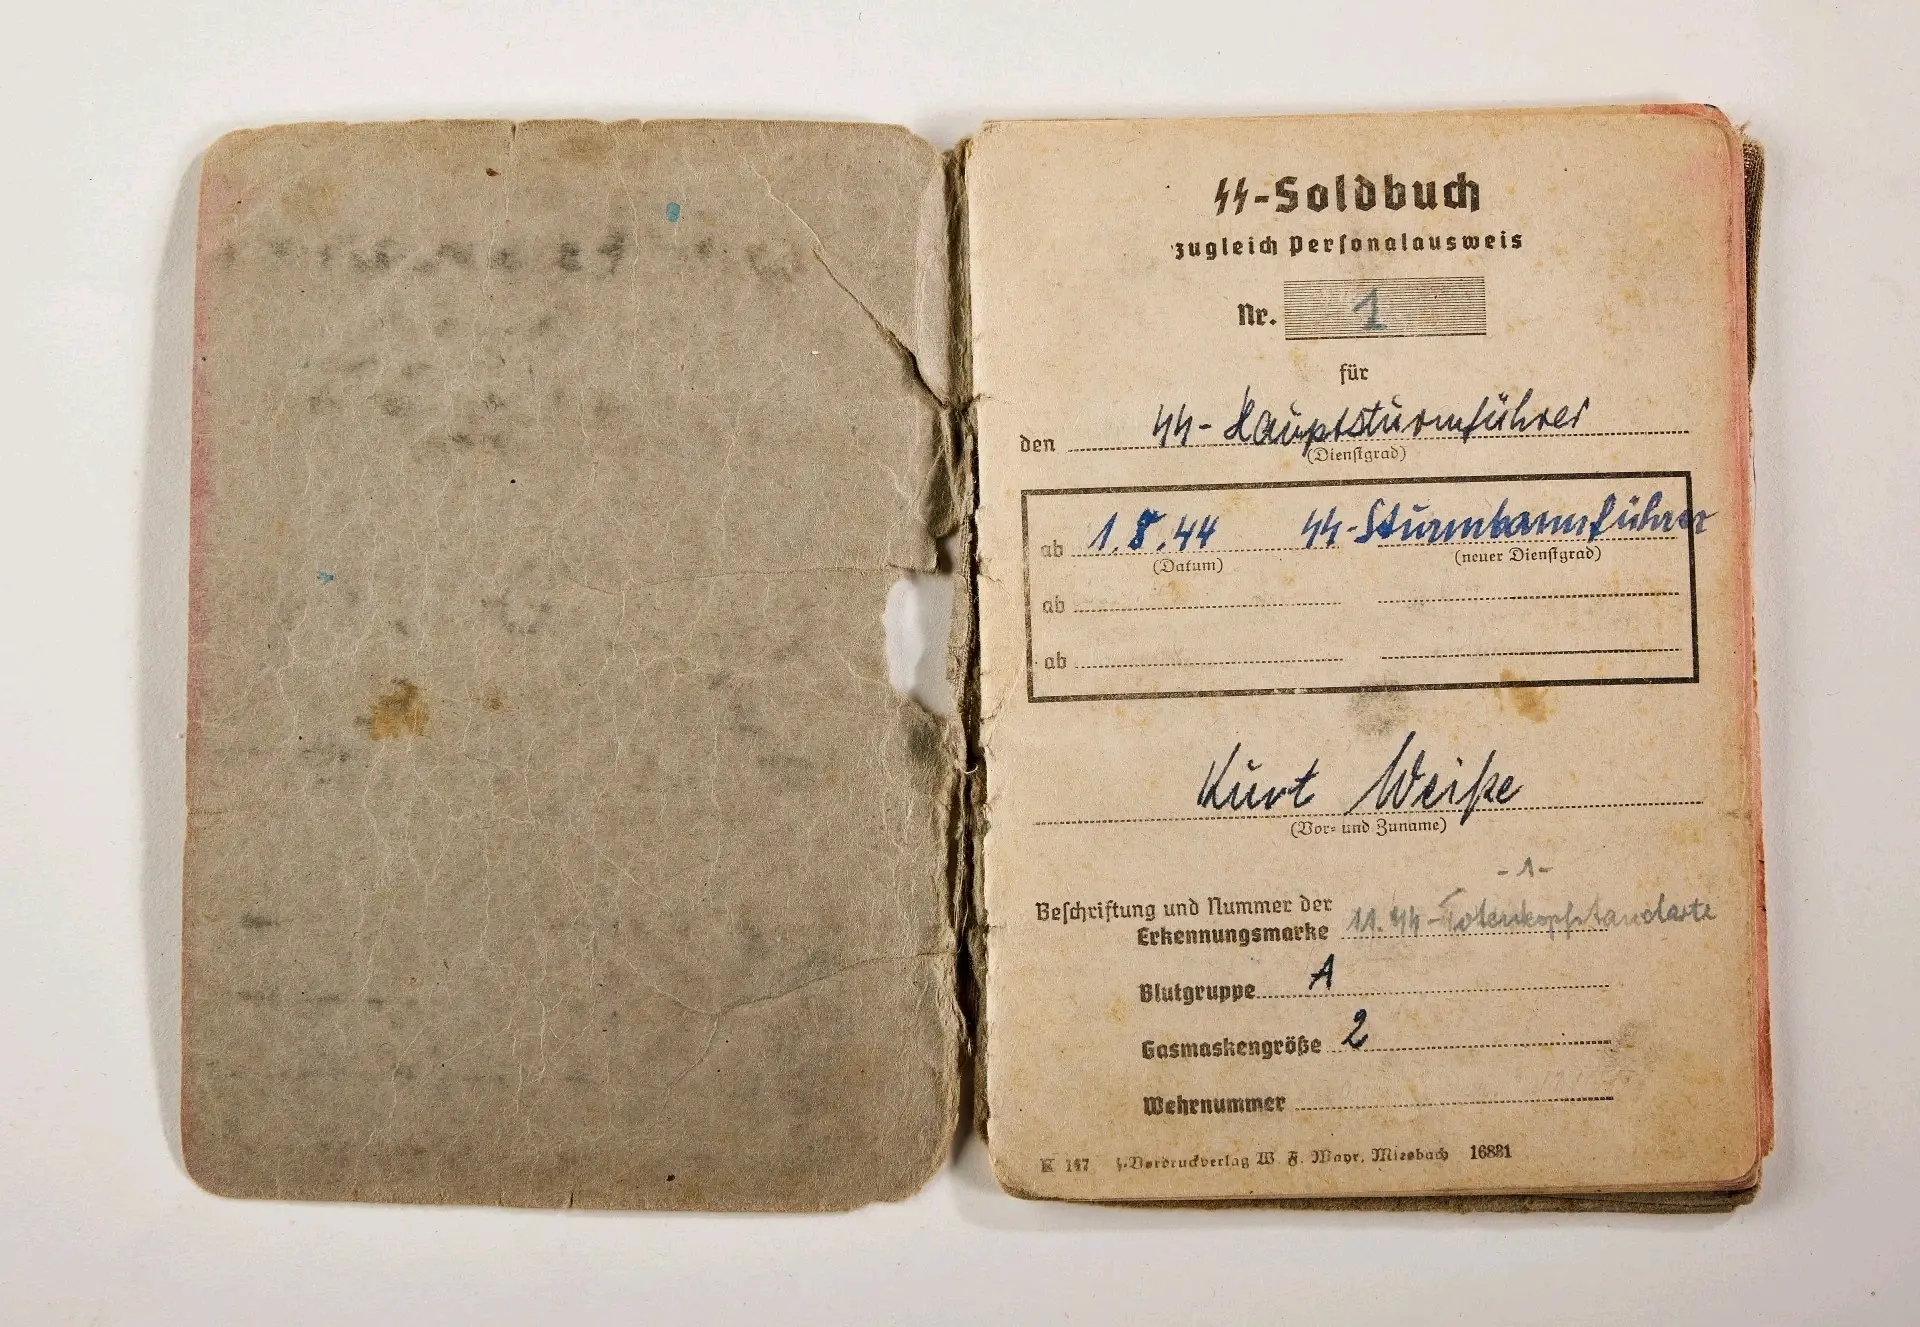 ᛋᛋ-Soldbuch
zugleich Personalausweis
Nr. 1
für
den ᛋᛋ-Hauptsturmführer
(Dienstgrad)
ab 1.8.44 ᛋᛋ-Sturmbannführer
(Datum) (neuer Dienstgrad)
ab
ab
Kurt Weiße
(Vor- und Zuname)
-1-
Beschriftung und Nummer der
Erkennungsmarke 11. ᛋᛋ-Totenkopfstandarte
Blutgruppe A
Gasmaskengröße 2
Wehrnummer
K 147 Vordruckverlag W. F. Mayr, Miesbach 16831